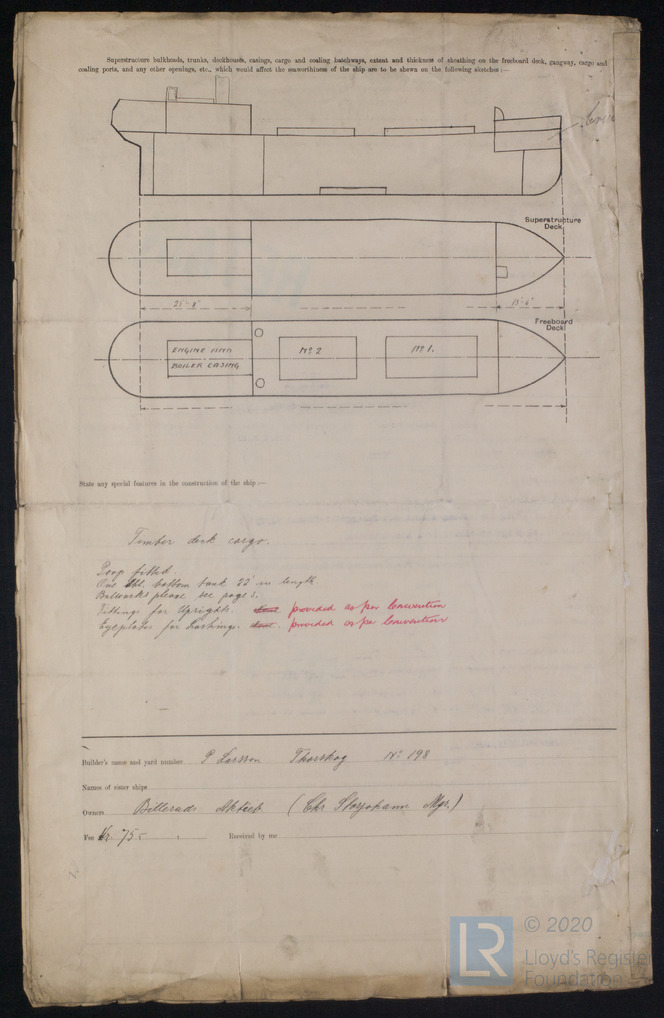 Superstructure bulkheads, trunks, deckhouses, casings, cargo and coaling hatchways, extent and thickness of sheathing on the freeboard deck, gangway, cargo and
coaling ports, and any other openings, etc., which would affect the seaworthiness of the ship are to be shewn on the following sketches:—
Superstructure
Deck
25'-8"
13'-6"
Freeboard
Deck
ENGINE AND
BOILER CASING
Nº 2
Nº 1.
State any special features in the construction of the ship :—
Timber deck cargo.
Poop fitted
One dbl. bottom tank 22' in length.
Bulwarks please see page 3.
Fittings for Uprights. provided as per Convention
Eyeplates for Lashings. provided as per Convention
Builder's name and yard number P Larsson Thorskog Nº 198
Names of sister ships
Owners Billeruds Aktieb (Chr Storjohann Mgr.)
Fee Kr 75:- : Received by me
© 2020
LR
Lloyd's Register
Foundation